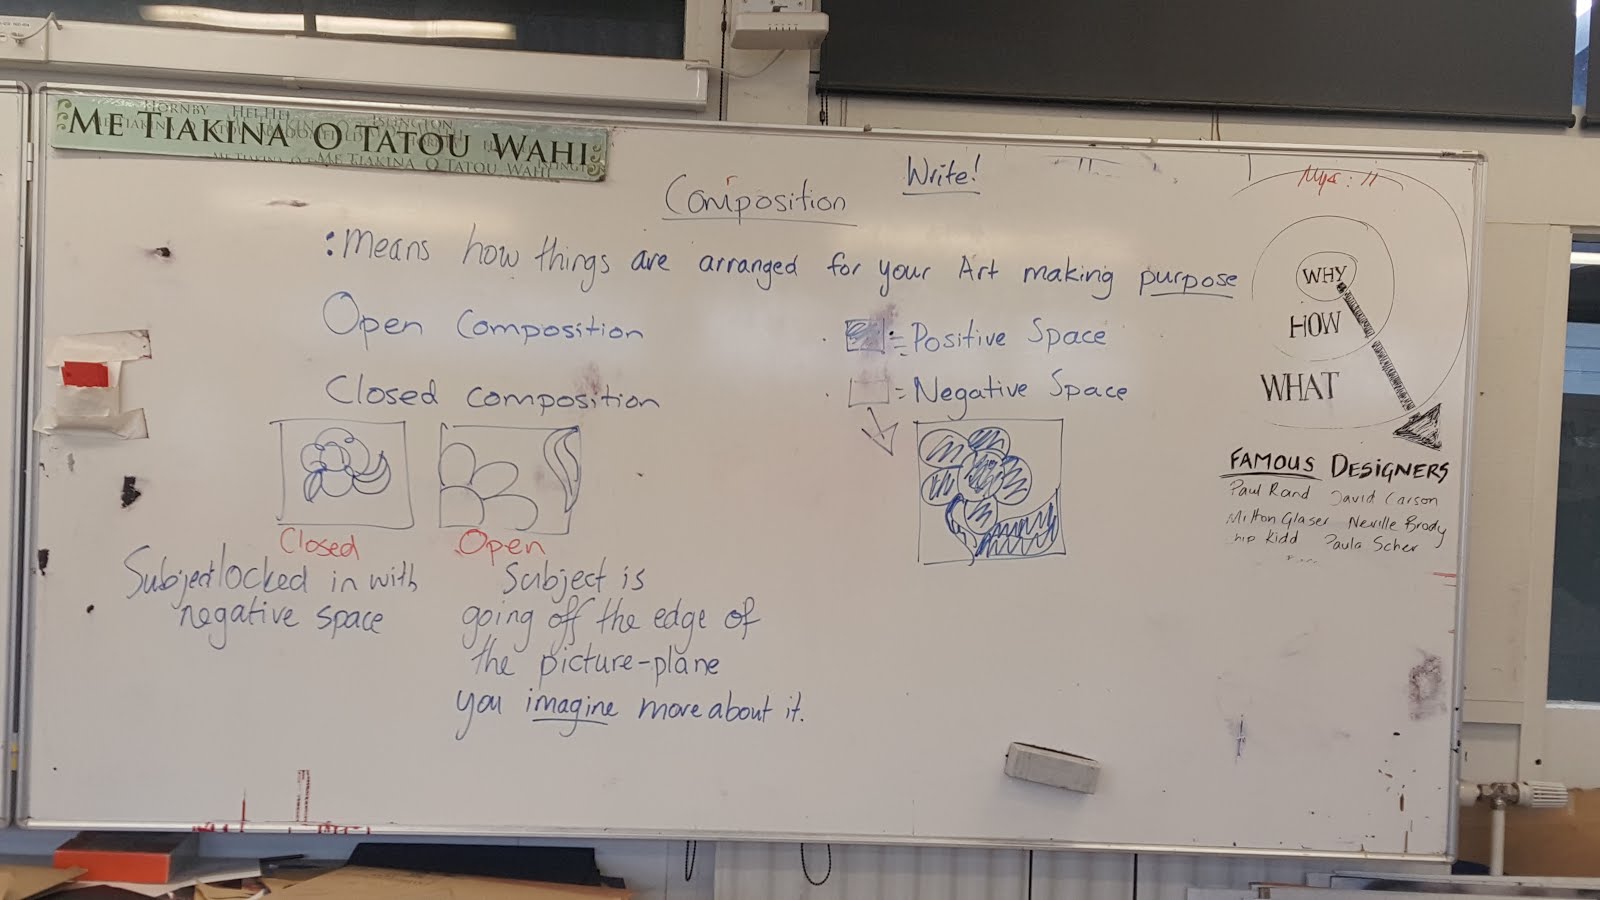 HORNBY HEI HEI ISLINGTON
ME TIAKINA O TATOU WAHI
ME TIAKINA O TATOU WAHI
Write!
Composition
: means how things are arranged for your Art making purpose
Open Composition
Closed composition
= Positive Space
= Negative Space
Closed
Subject locked in with
negative space
Open
Subject is
going off the edge of
the picture-plane
you imagine more about it.
WHY
HOW
WHAT
FAMOUS DESIGNERS
Paul Rand David Carson
Milton Glaser Neville Brody
hip Kidd Paula Scher